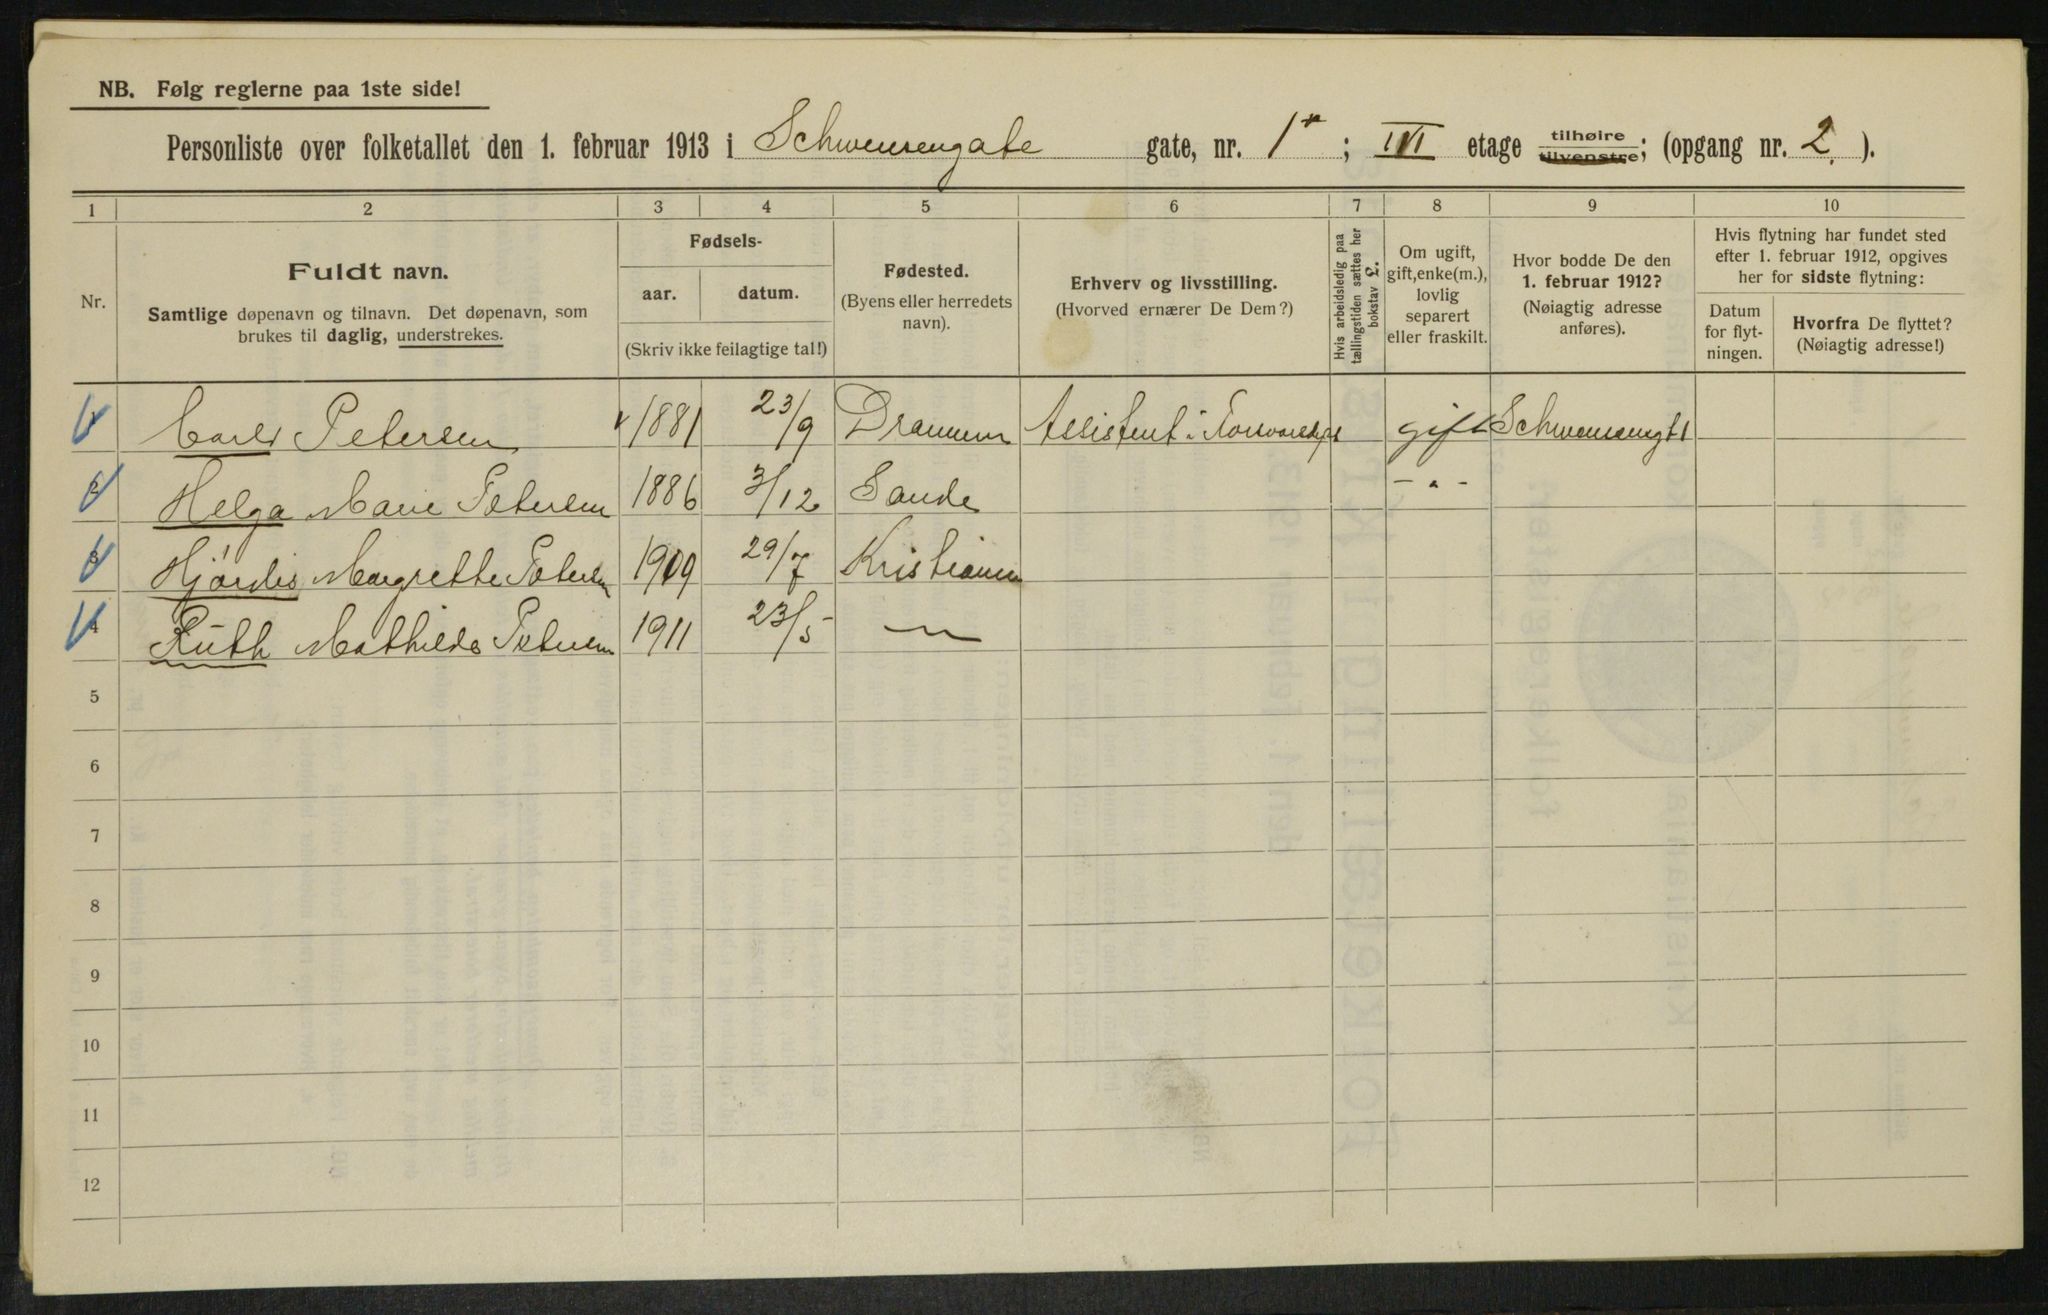 NB. Følg reglerne paa 1ste side!
Personliste over folketallet den 1. februar 1913 i Schwensengate gate, nr. 1 ; etage tilhøire tilvenstre; (opgang nr. 2. ).
1 2 3 4 5 6 7 8 9 10
Nr.
Fuldt navn.
Samtlige døpenavn og tilnavn. Det døpenavn, som
brukes til daglig, understrekes.
Fødsels-
aar. datum.
(Skriv ikke feilagtige tal!)
Fødested.
(Byens eller herredets
navn).
Erhverv og livsstilling.
(Hvorved ernærer De Dem?)
Hvis arbeidsledig paa
tællingstiden sættes her
bokstav L.
Om ugift,
gift, enke(m.),
lovlig
separert
eller fraskilt.
Hvor bodde De den
1. februar 1912?
(Nøiagtig adresse
anføres).
Hvis flytning har fundet sted
efter 1. februar 1912, opgives
her for sidste flytning:
Datum
for flyt-
ningen.
Hvorfra De flyttet?
(Nøiagtig adresse!)
1 Carl Petersen 1881 23/9 Drammen Assistent i gift Schwensengt 1
2 Helga Marie Petersen 1886 3/12 Sande - " -
3 Hjördis Margrethe Petersen 1909 29/7 Kristiania
4 Ruth Mathilde Petersen 1911 23/5 —
5
6
7
8
9
10
11
12